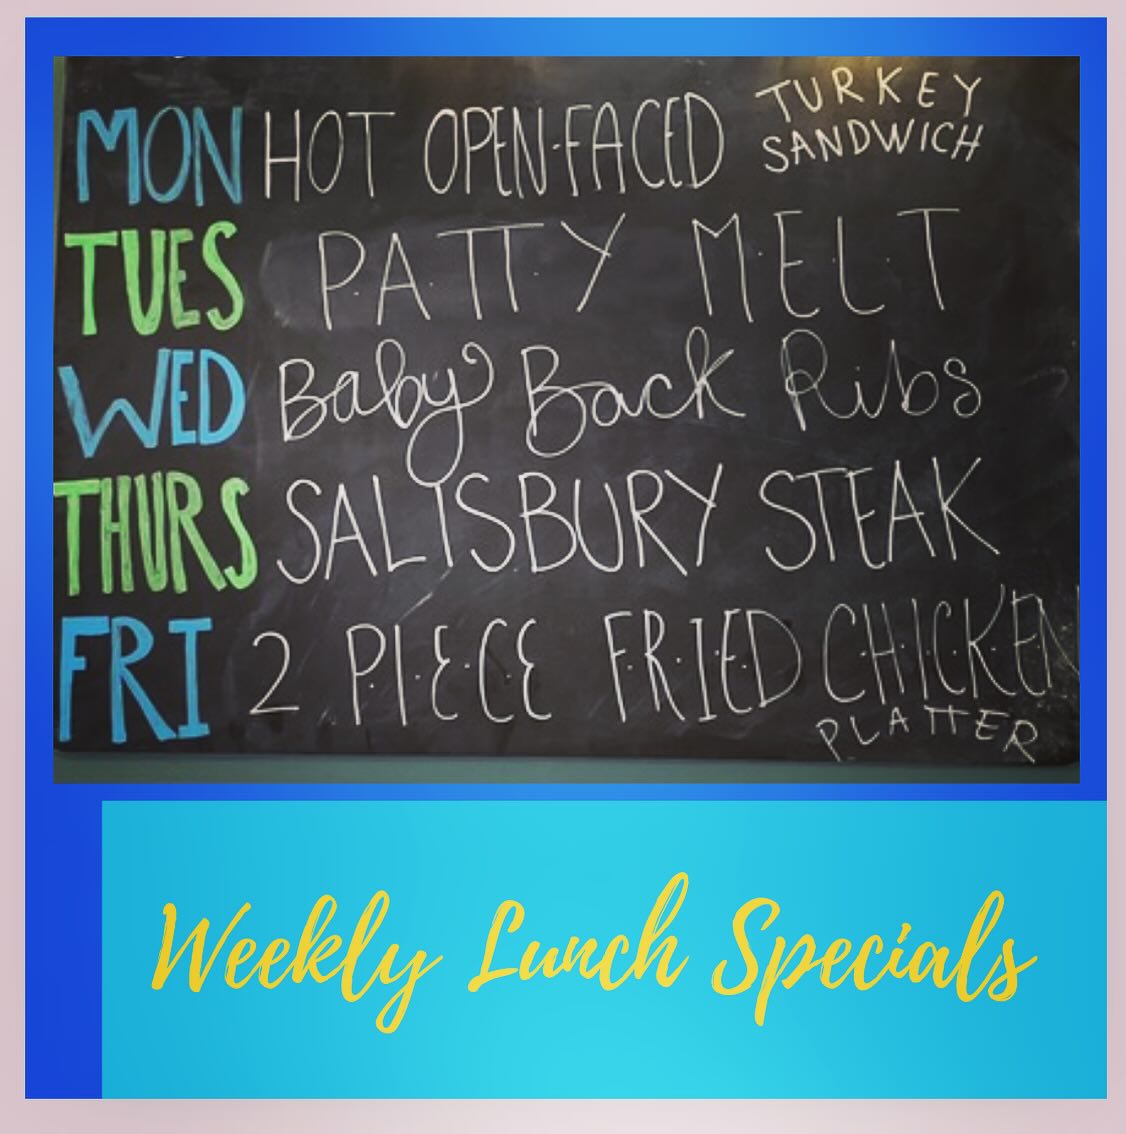 MON HOT OPEN-FACED TURKEY SANDWICH
TUES PATTY MELT
WED Baby Back Ribs
THURS SALISBURY STEAK
FRI 2 PIECE FRIED CHICKEN
PLATTER
Weekly Lunch Specials